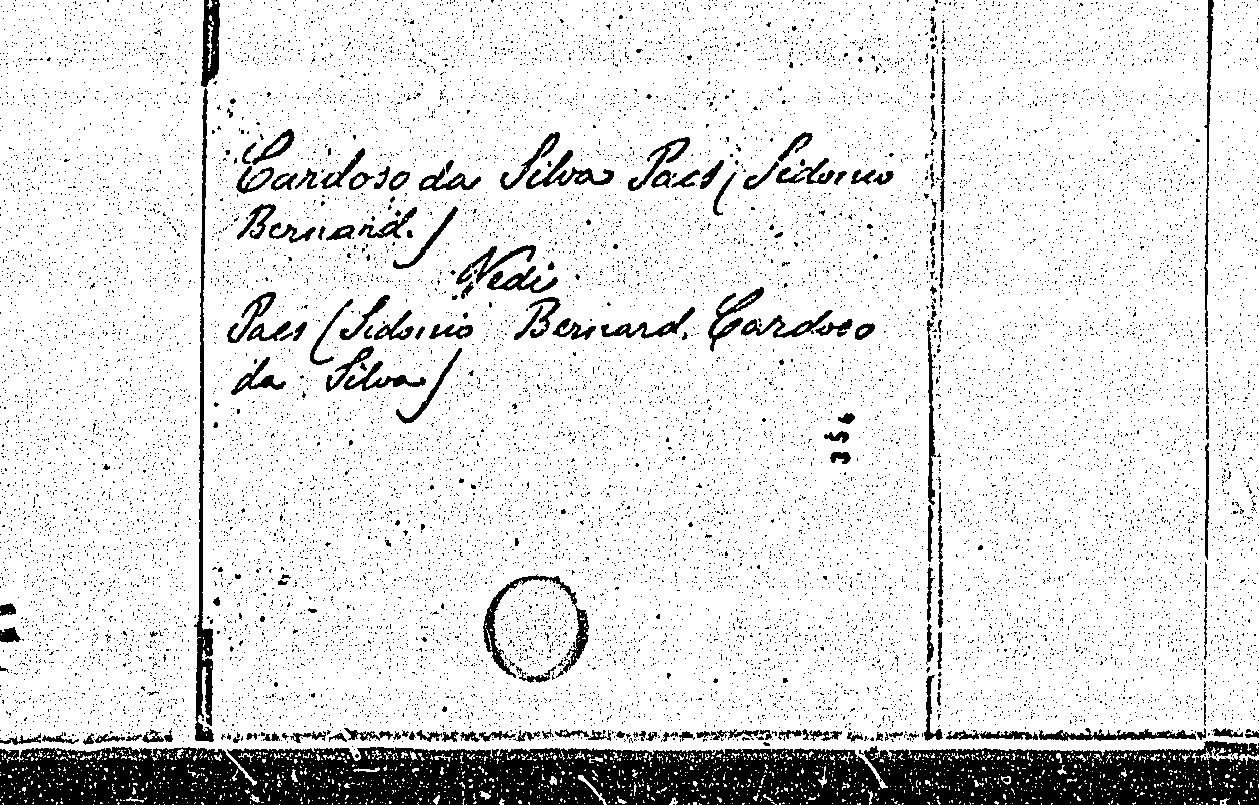 Cardoso da Silva Paes (Sidonio
Bernard.)
Vedi
Paes (Sidonio Bernard. Cardoso
da Silva)
356